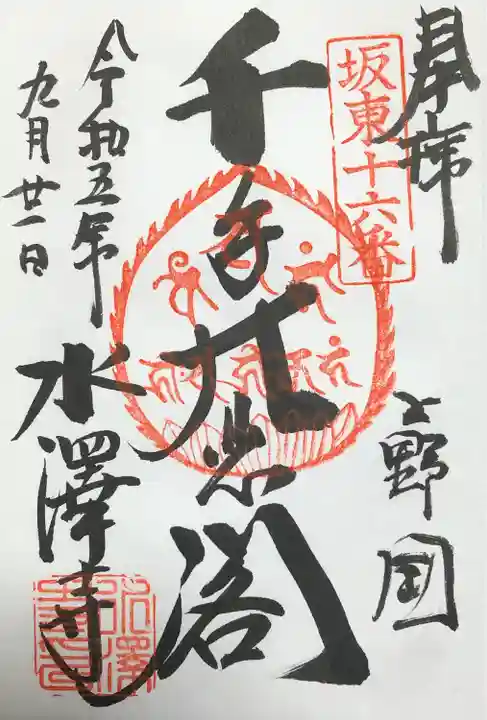 奉拝
坂東十六番
上野国
千手大悲閣
令和五年
九月廿一日
水澤寺